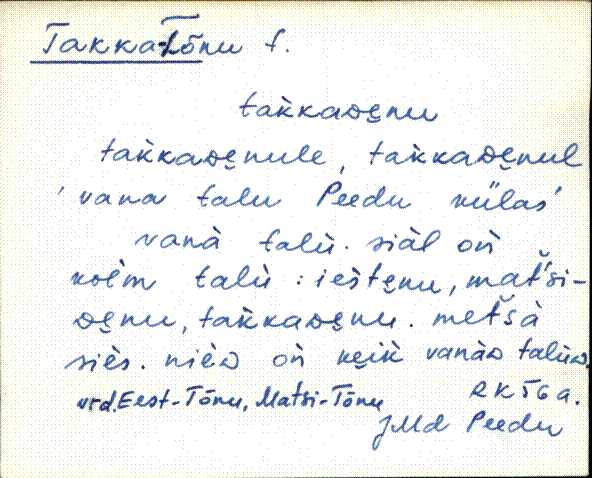 Takka-Tõnu t.
tak̀kaᴅe̮nu
tak̀kaᴅe̮nule, tak̀kaᴅe̮nul
'vana talu Peedu külas'
vanà talù. siàl oǹ
kolèm talù: ièste̮nu, mat̆si-
ᴅe̮nu, tak̀kaᴅe̮nu. met̆sà
siès. nièᴅ oǹ ke̮ik̀ vanàᴅ talùᴅ.
vrd. Eest-Tõnu, Matsi-Tõnu
JMd Peedu